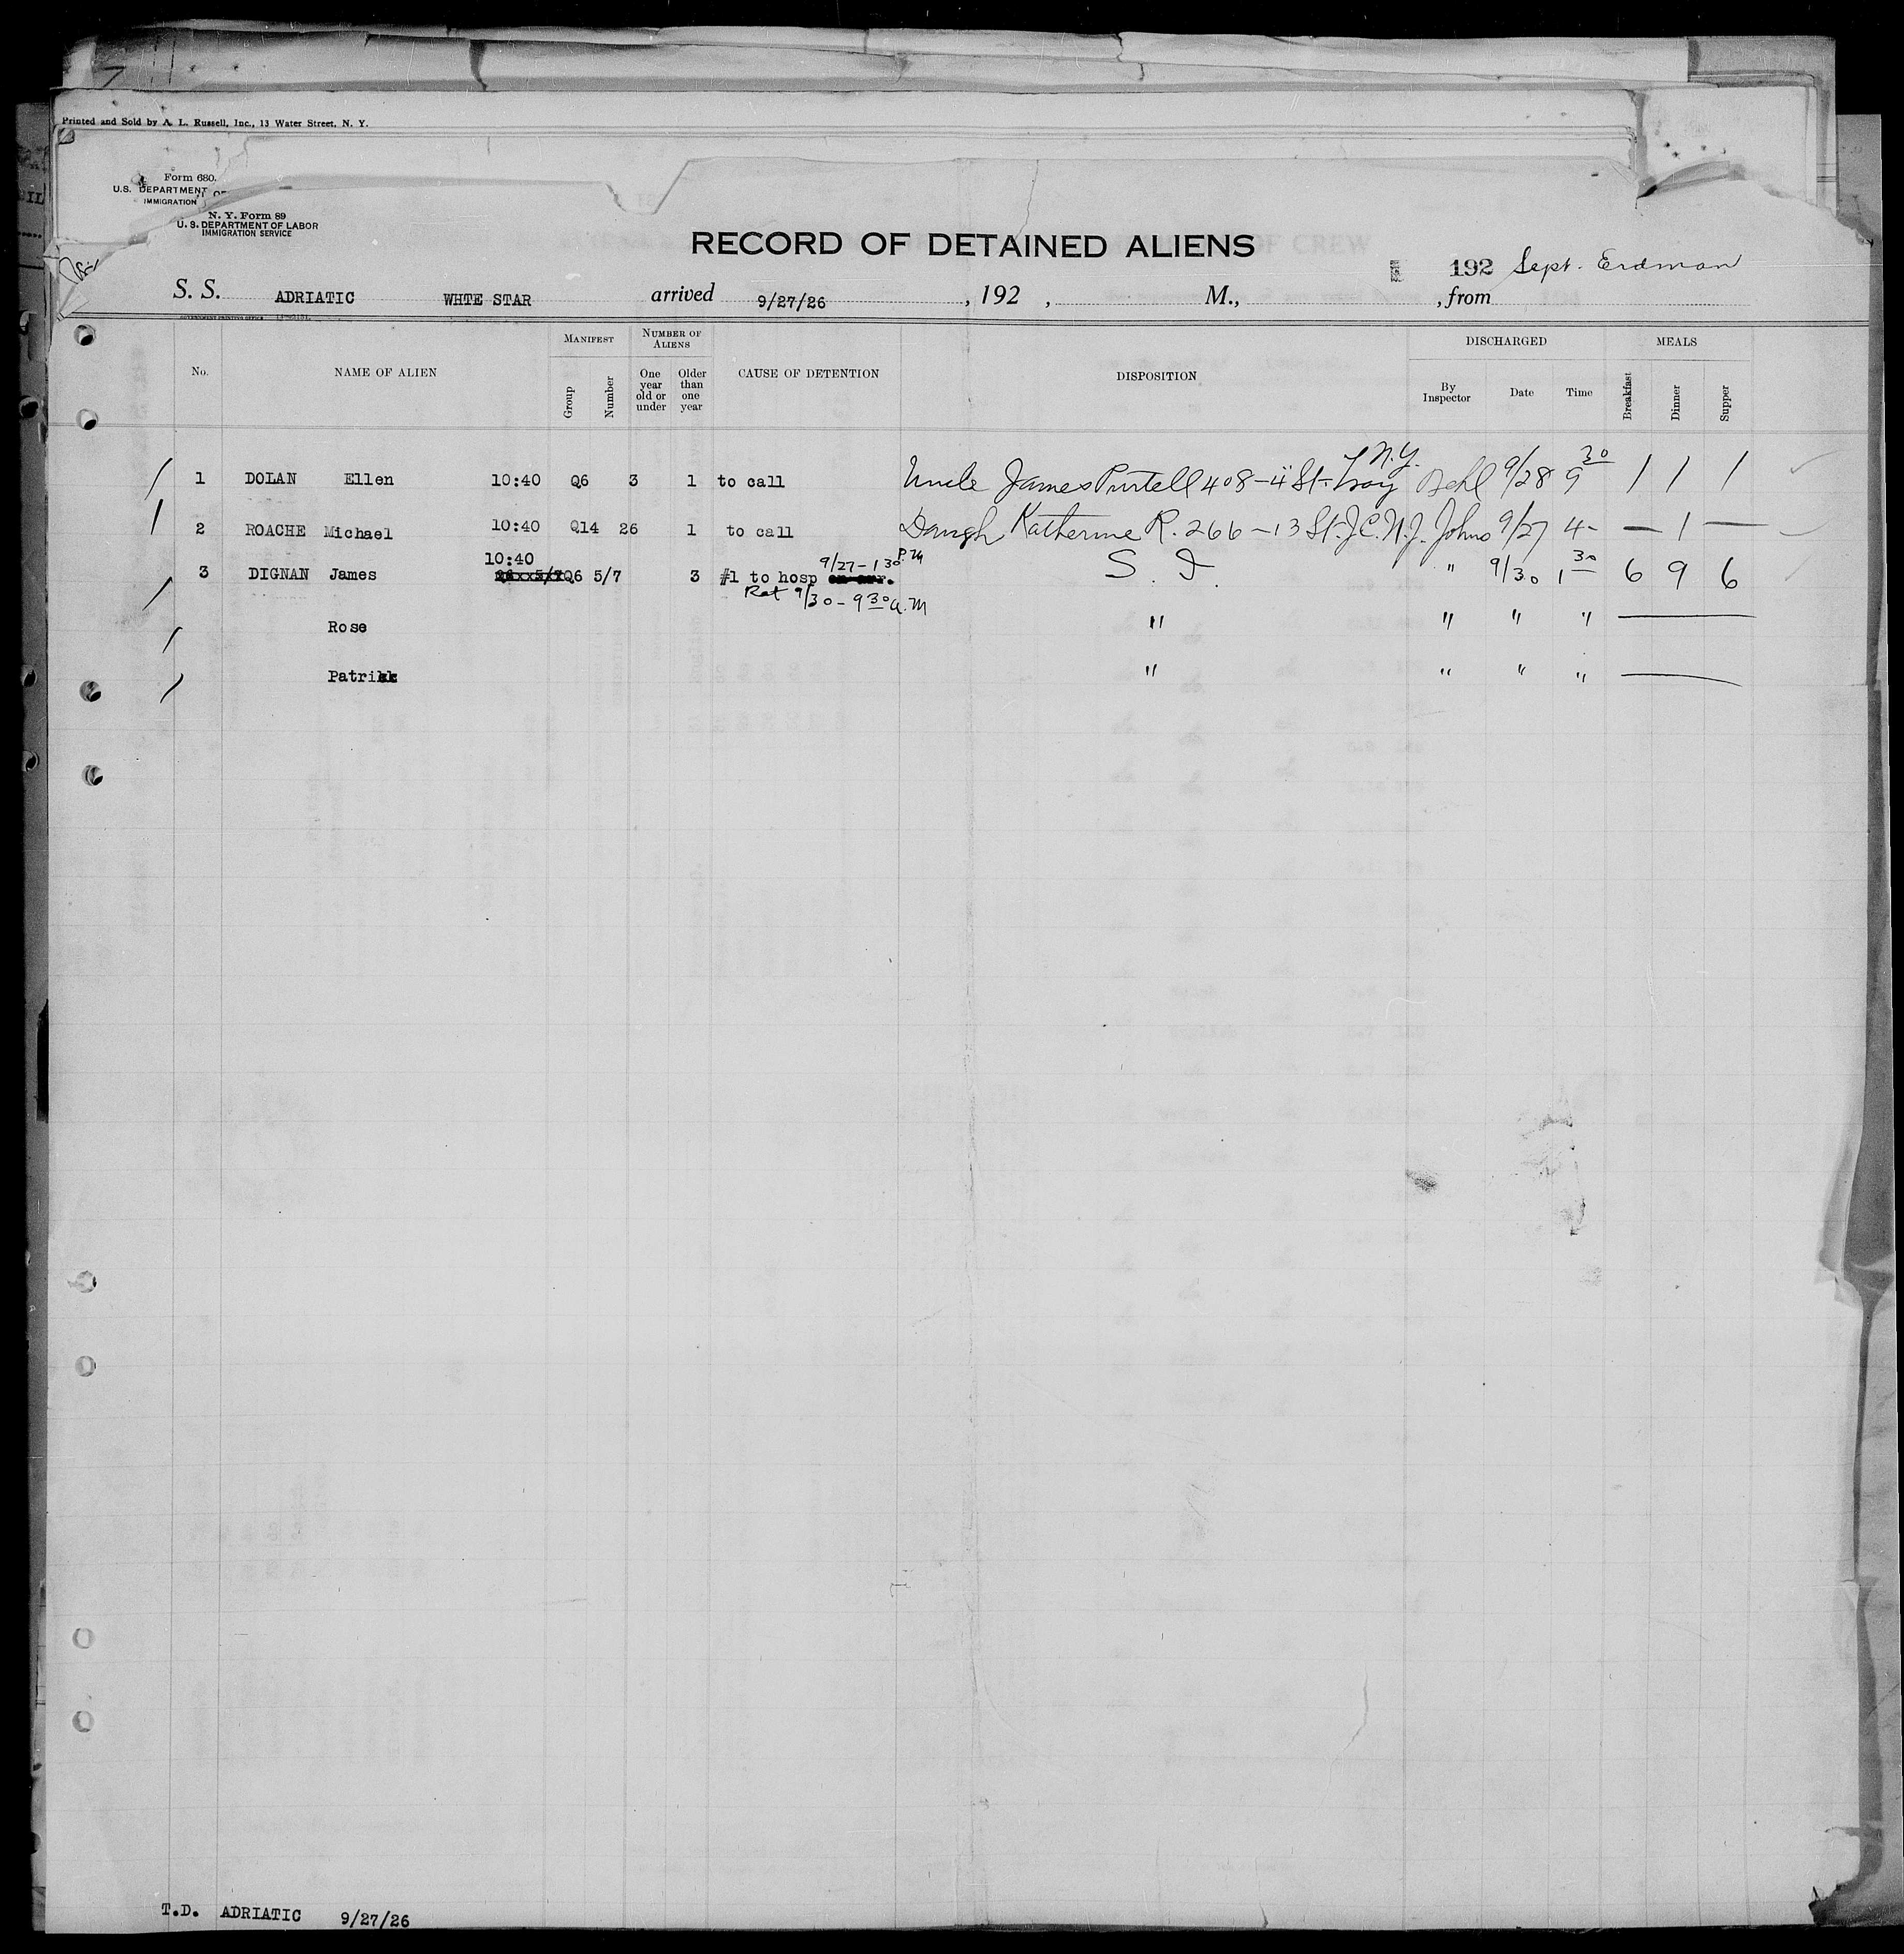 Printed and Sold by A. L. Russell, Inc., 13 Water Street, N. Y.
Form 680.
U.S. DEPARTMENT OF
IMMIGRATION
N. Y. Form 89
U. S. DEPARTMENT OF LABOR
IMMIGRATION SERVICE
RECORD OF DETAINED ALIENS
192 Sept. Erdman
S. S. ADRIATIC WHTE STAR arrived 9/27/26 , 192 , M., , from
No. NAME OF ALIEN MANIFEST Group Number NUMBER OF ALIENS One year old or under Older than one year CAUSE OF DETENTION DISPOSITION DISCHARGED By Inspector Date Time MEALS Breakfast Dinner Supper
1 DOLAN Ellen 10:40 Q6 3 1 to call Uncle James Purtell 408-4 St. Troy N.Y. 9/28 9 30 1 1 1
2 ROACHE Michael 10:40 Q14 26 1 to call Daugh Katherine R. 266-13 St. J.C. N.J. Johns 9/27 4- — 1 —
3 DIGNAN James 10:40 Q6 5/7 3 #1 to hosp 9/27-1 30 P.M S. I. " 9/30 1 30 6 9 6
Ret 9/30-9 30 a.m
Rose " " " "
Patrick " " " "
T.D. ADRIATIC 9/27/26